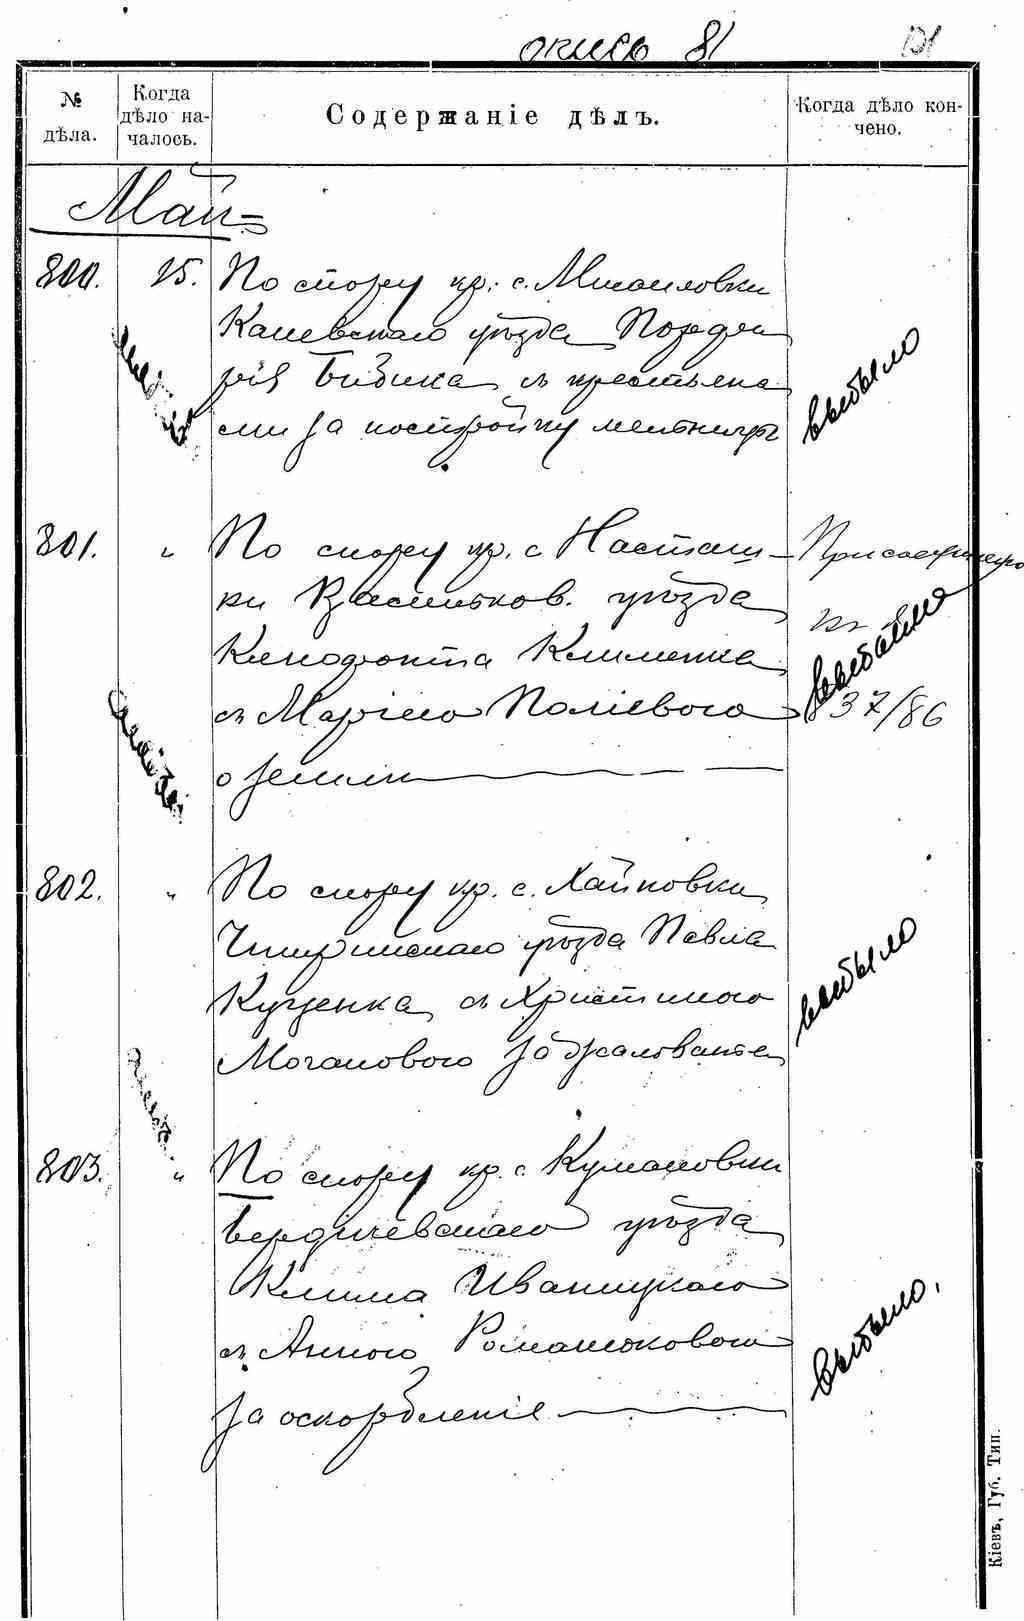 опись 81
131
№ дѣла.
Когда дѣло началось.
Содержаніе дѣлъ.
Когда дѣло кончено.
Май
800. 25. По спору кр. с. Михайловки
Каневскаго уѣзда
Бибика съ крестьяна
ми за постройку мельницы
выбыло
801. " По спору кр. с Насташ-
ки Васильков. уѣзда
Клименка
съ Маріею Поліевою
о землѣ
Присоединено
къ
выбыло
37/86
802. " По спору кр. с.
Чигиринскаго уѣзда Павла
Куценка съ Христиною
за жалованье
выбыло
803. " По спору кр. с Кумановки
Бердичевскаго уѣзда
Клима Иваницкаго
съ Анною Романюковою
за оскорбленіе
выбыло.
Кіевъ, Губ. Тип.